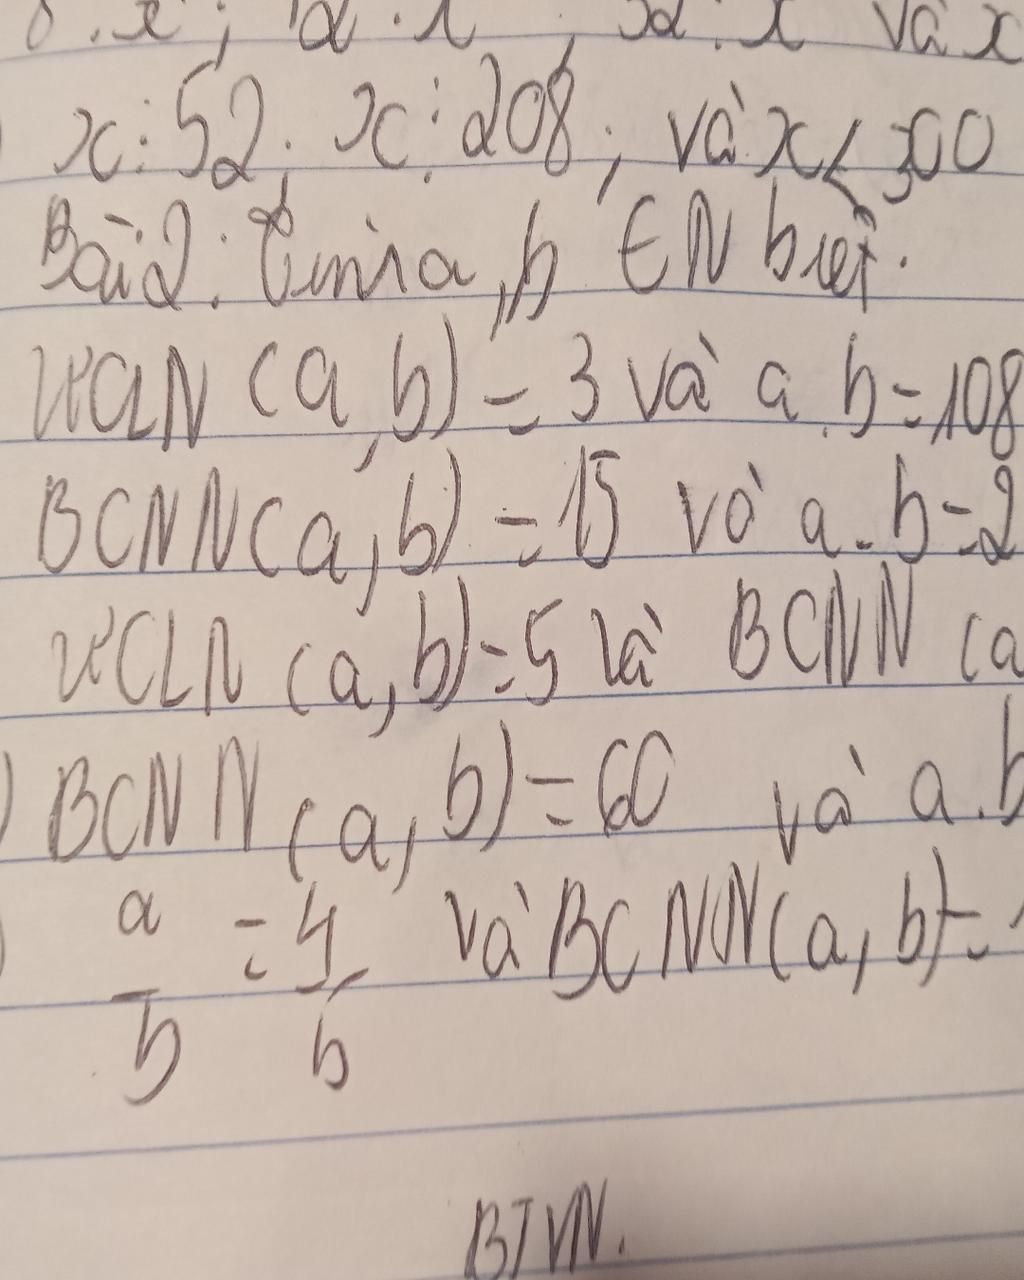 và x
x ⋮ 52; x ⋮ 208; và x < 300
Bài 2: Tìm a, b ∈ N biết.
ƯCLN (a, b) = 3 và a.b = 108
BCNN (a, b) = 15 và a - b = 2
ƯCLN (a, b) = 5 và BCNN (a
) BCNN (a, b) = 60 và a.b
a/b = 4/5 và BCNN (a, b) =
BTVN.